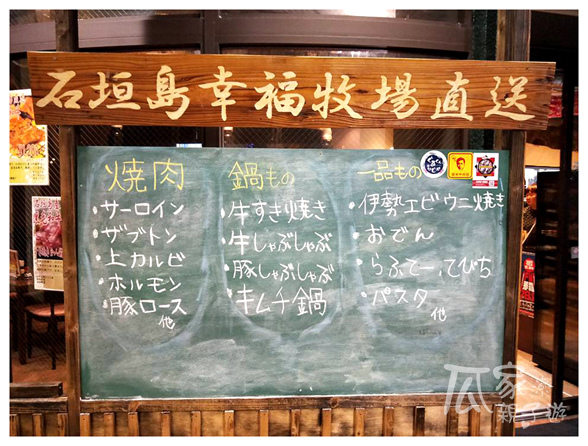 石垣島幸福牧場直送
焼肉
・サーロイン
・ザブトン
・上カルビ
・ホルモン
・豚ロース
他
鍋もの
・牛すき焼き
・牛しゃぶしゃぶ
・豚しゃぶしゃぶ
・キムチ鍋
一品もの
・伊勢エビウニ焼き
・おでん
・らふてー、てびち
・パスタ
他
瓜家の
親子遊